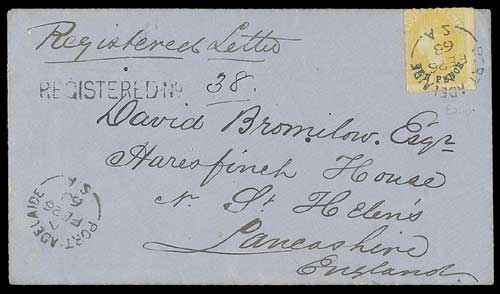 Registered Letter
REGISTERED No 38.
David Bromilow. Esqr
Haresfinch House
Nr. St Helen's
Lancashire
England.
PORT ADELAIDE
S A
FE 26
63
PENCE
PORT ADELAIDE
S A
FE